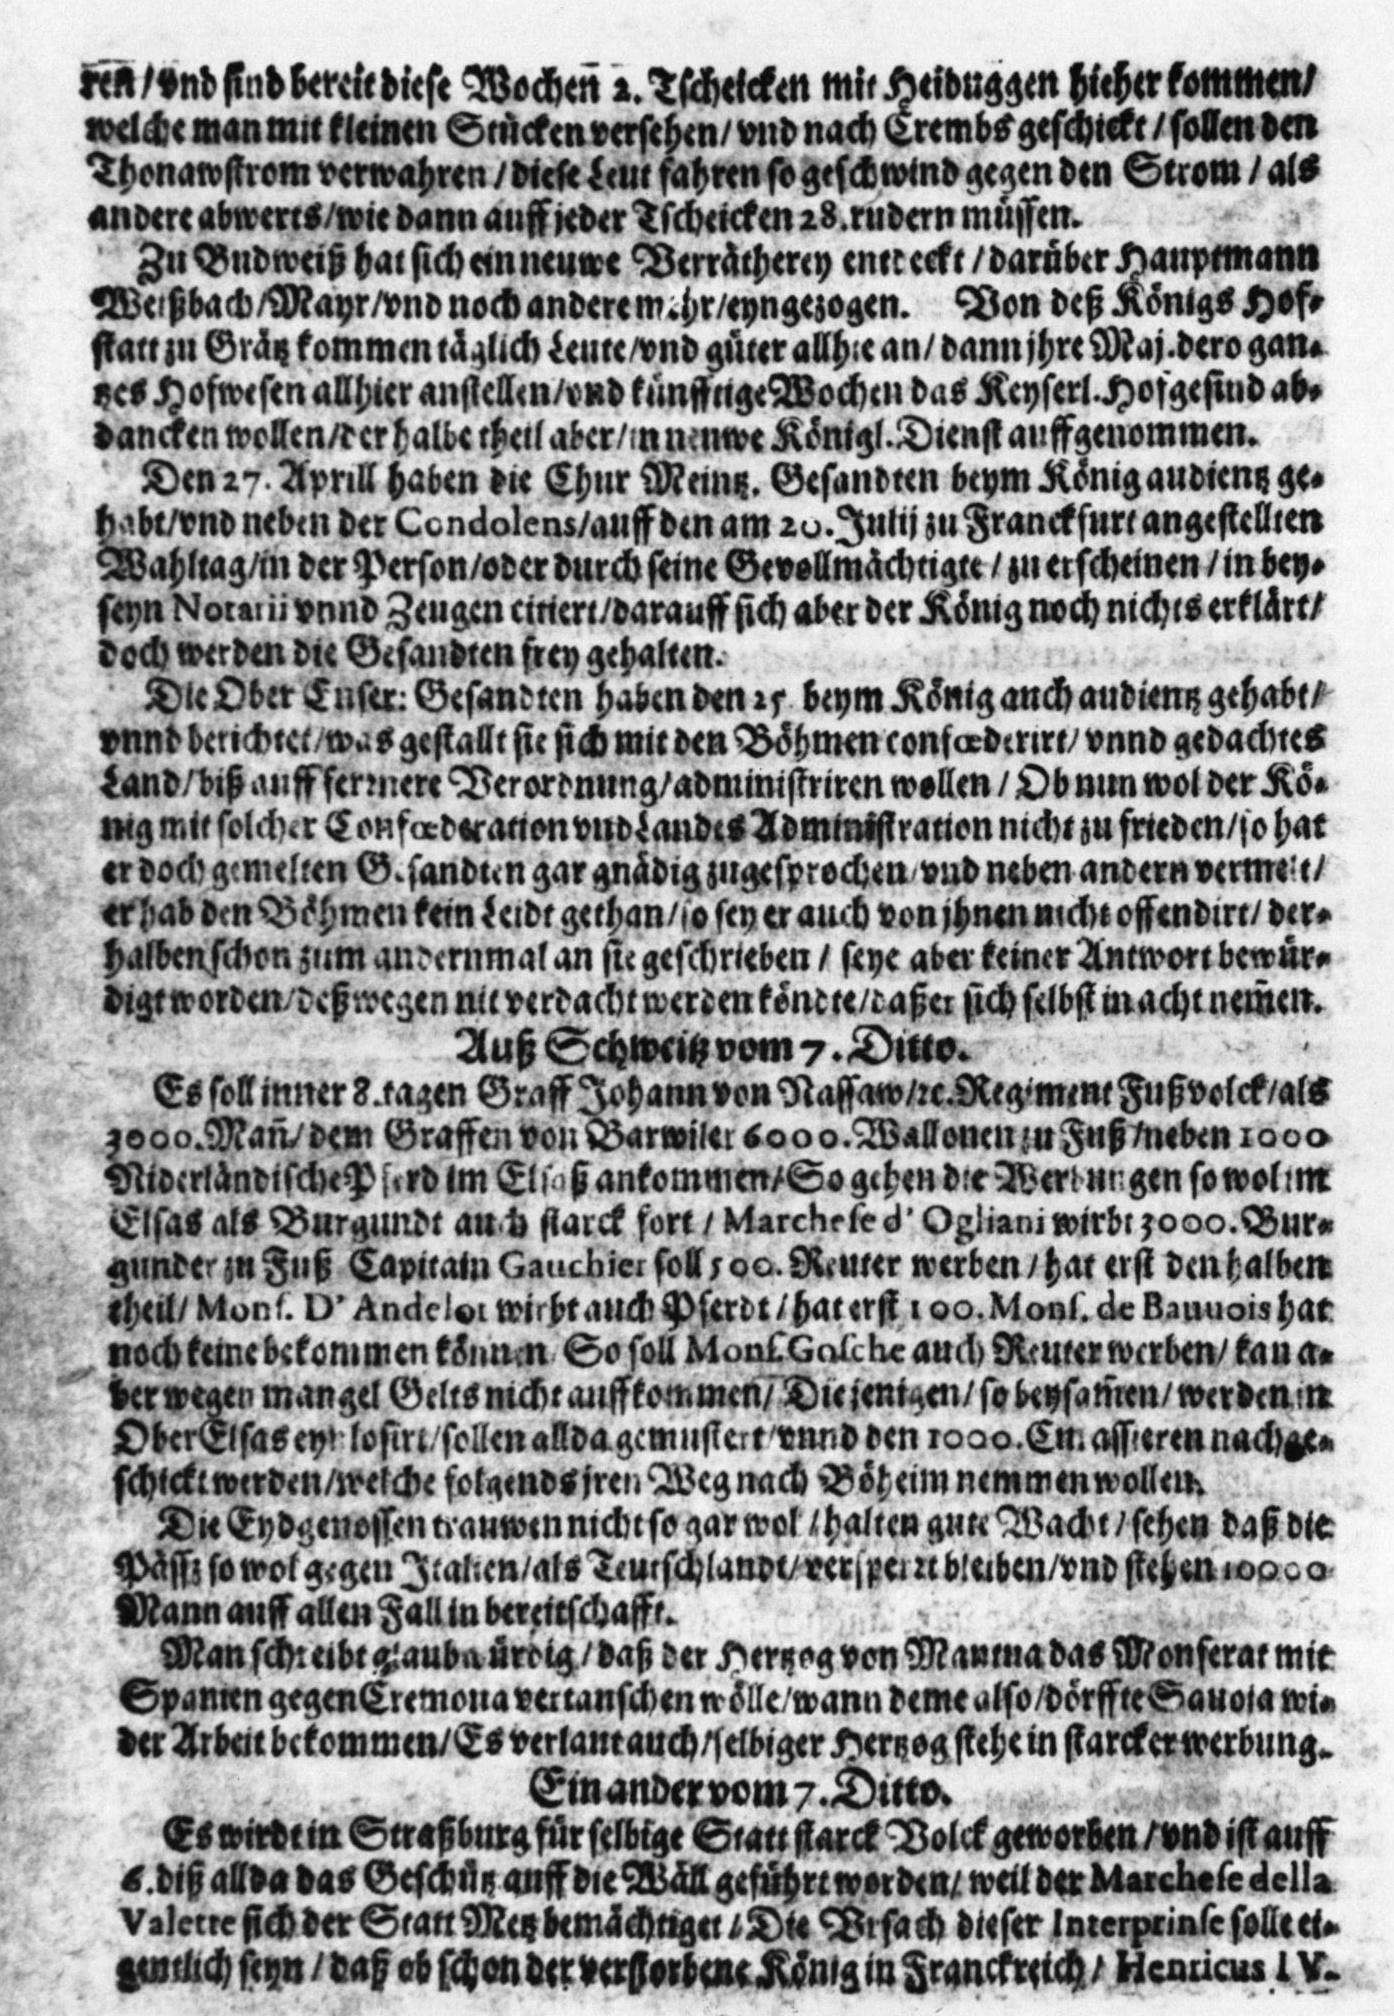 ren / vnd sind bereit diese Wochen̄ 2. Tscheicken mit Heiduggen hieher kommen/
welche man mit kleinen Stücken versehen/ vnd nach Crembs geschickt / sollen den
Thonawstrom verwahren / diese Leut fahren so geschwind gegen den Strom / als
andere abwerts/wie dann auff jeder Tscheicken 28. rudern müssen.
Zu Budweiß hat sich ein neuwe Verrätherey entdeckt / darüber Hauptmann
Weißbach/Mayr/vnd noch andere mehr/eyngezogen. Von deß Königs Hof-
statt zu Grätz kommen täglich Leute/vnd güter allhie an/ dann jhre Maj. dero gan-
tzes Hofwesen allhier anstellen/vnd künfftige Wochen das Keyserl. Hofgesind ab-
dancken wollen/der halbe theil aber/in neuwe Königl. Dienst auffgenommen.
Den 27. Aprill haben die Chur Meintz. Gesandten beym König audientz ge-
habt/vnd neben der Condolens/auff den am 20. Julij zu Franckfurt angestellten
Wahltag/in der Person/oder durch seine Gevollmächtigte / zu erscheinen / in bey-
seyn Notarii vnnd Zeugen citiert/darauff sich aber der König noch nichts erklärt/
doch werden die Gesandten frey gehalten.
Die Ober Enser: Gesandten haben den 25 beym König auch audientz gehabt/
vnnd berichtet/was gestallt sie sich mit den Böhmen confœderirt/ vnnd gedachtes
Land/biß auff fernere Verordnung/administriren wollen / Ob nun wol der Kö-
nig mit solcher Confœderation vnd Landes Administration nicht zu frieden/so hat
er doch gemelten Gesandten gar gnädig zugesprochen/vnd neben andern vermelt/
er hab den Böhmen kein Leidt gethan/so sey er auch von jhnen nicht offendirt/ der-
halben schon zum andernmal an sie geschrieben / seye aber keiner Antwort bewür-
digt worden/deßwegen nit verdacht werden köndte/daß er sich selbst in acht nem̄en.
Auß Schweitz vom 7. Ditto.
Es soll inner 8. tagen Graff Johann von Nassaw/ꝛc. Regiment Fußvolck/als
3000. Man̄/ dem Graffen von Barwiler 6000. Wallonen zu Fuß/neben 1000
Niderländische Pferd im Elsaß ankommen/So gehen die Werbungen so wol im
Elsas als Burgundt auch starck fort / Marchese d' Ogliani wirbt 3000. Bur-
gunder zu Fuß Capitain Gauchier soll 500. Reuter werben / hat erst den halben
theil/ Mons. D' Andelot wirbt auch Pferdt / hat erst 100. Mons. de Bauuois hat
noch keine bekommen können So soll Mons. Gosche auch Reuter werben/ kan a-
ber wegen mangel Gelts nicht auffkommen/ Die jenigen/ so beysam̄en/ werden in
Ober Elsas eynlosirt/sollen allda gemustert/vnnd den 1000. Curassieren nachge-
schickt werden/welche folgends jren Weg nach Böheim nemmen wollen.
Die Eydgenossen trauwen nicht so gar wol / halten gute Wacht / sehen daß die
Pässz so wol gegen Italien/als Teutschlandt/versperrt bleiben/vnd stehen 10000
Mann auff allen Fall in bereitschafft.
Man schreibt glaubwürdig / daß der Hertzog von Mantua das Monferat mit
Spanien gegen Cremona vertauschen wölle/wann deme also/dörffte Sauoia wi-
der Arbeit bekommen/Es verlaut auch/selbiger Hertzog stehe in starcker werbung.
Ein ander vom 7. Ditto.
Es wirdt in Straßburg für selbige Statt starck Volck geworben / vnd ist auff
6. diß allda das Geschütz auff die Wäll geführt worden/ weil der Marchese della
Valette sich der Statt Metz bemächtiget / Die Vrsach dieser Interprinse solle ei-
gentlich seyn / daß ob schon der verstorbene König in Franckreich / Henricus IV.